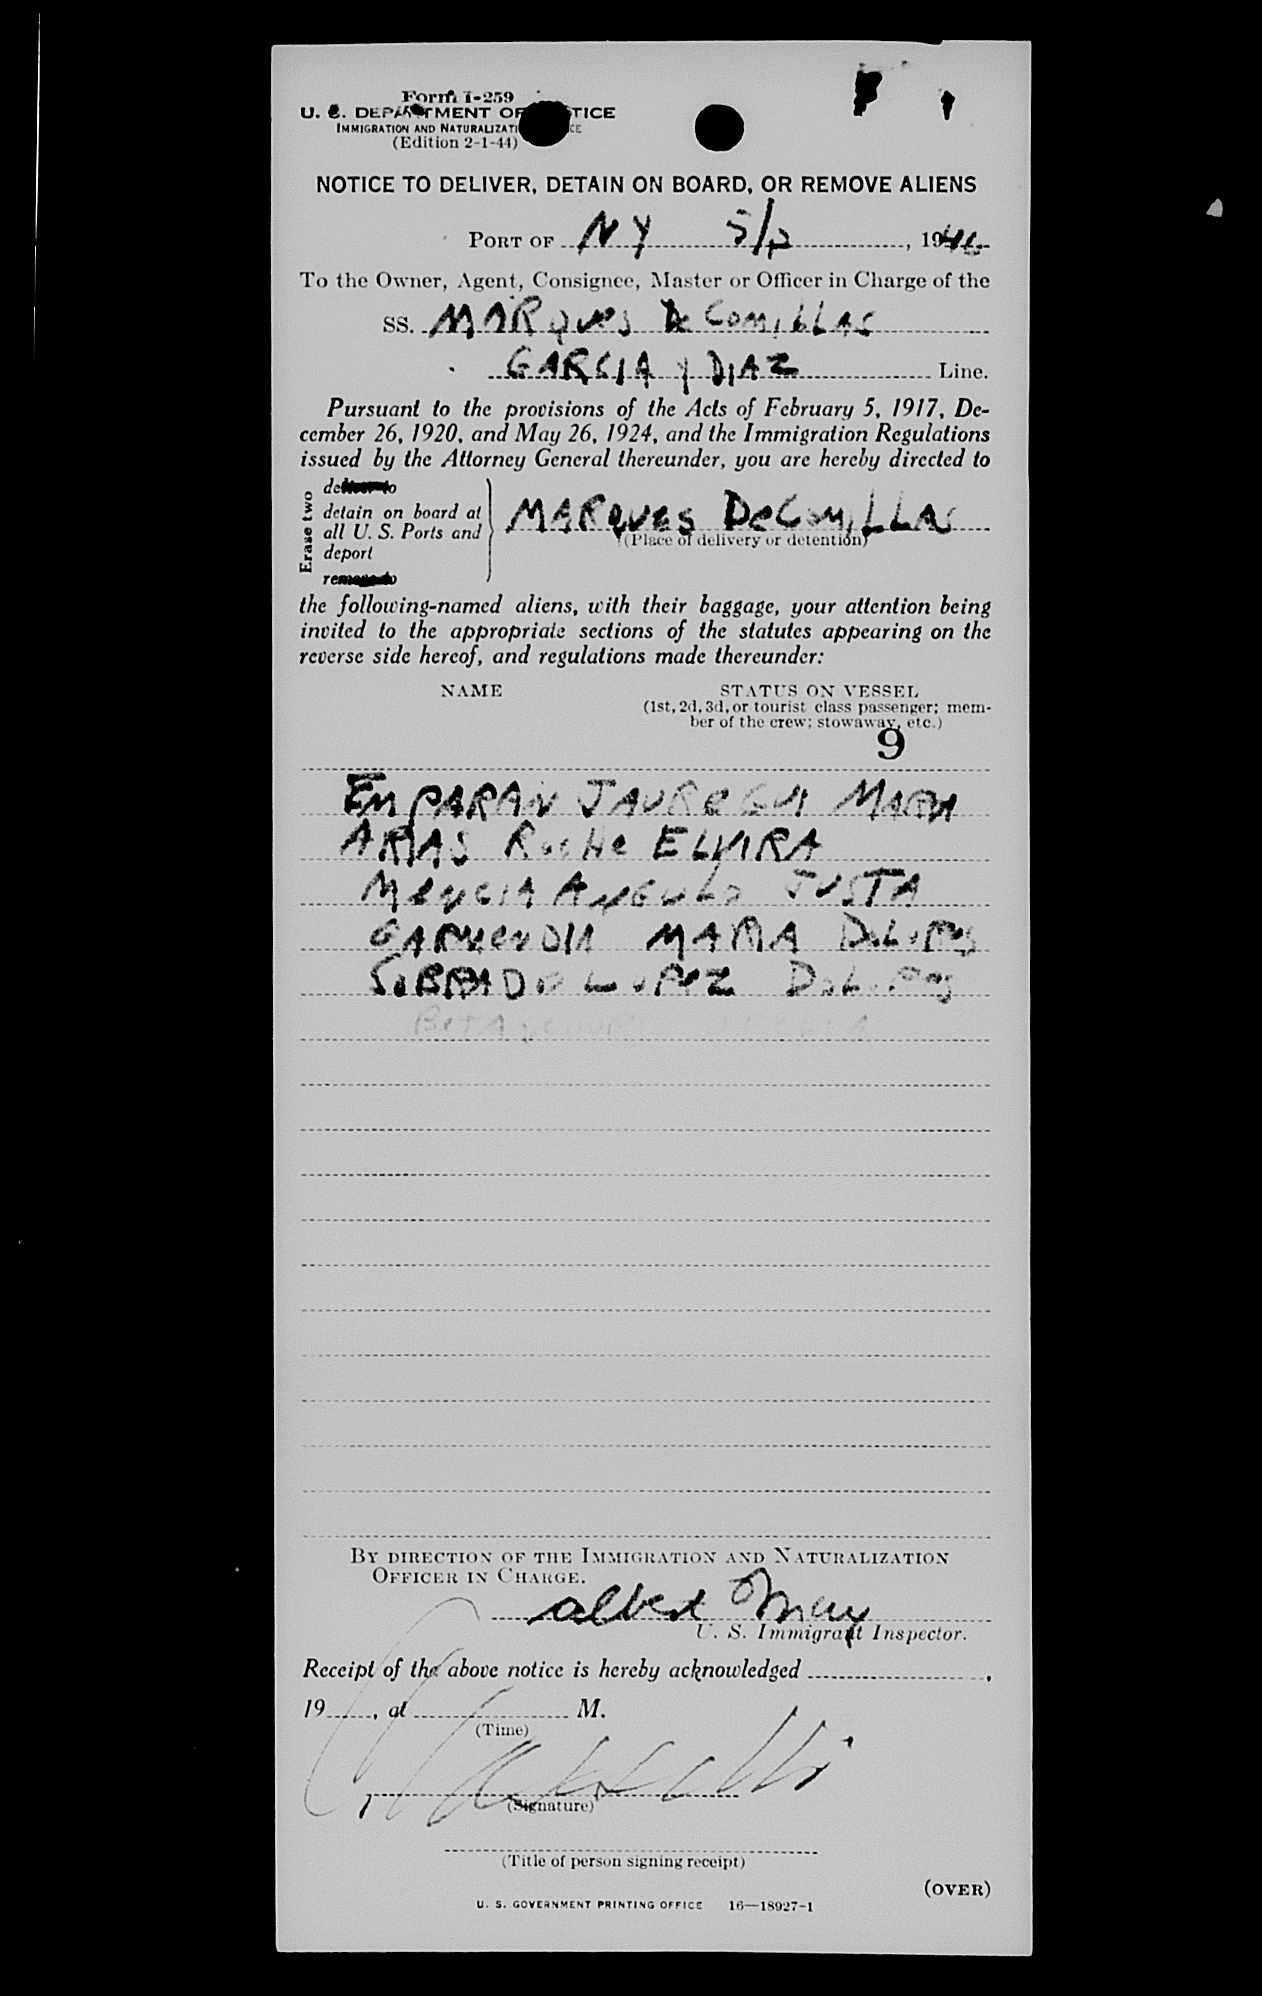 Form I-259
U. S. DEPARTMENT OF JUSTICE
IMMIGRATION AND NATURALIZATION SERVICE
(Edition 2-1-44)
NOTICE TO DELIVER, DETAIN ON BOARD, OR REMOVE ALIENS
PORT OF NY 5/2, 1946
To the Owner, Agent, Consignee, Master or Officer in Charge of the
SS. MARques De ComiLLAS
GARCIA y DIAZ Line.
Pursuant to the provisions of the Acts of February 5, 1917, De-
cember 26, 1920, and May 26, 1924, and the Immigration Regulations
issued by the Attorney General thereunder, you are hereby directed to
Erase two
deliver to
detain on board at
all U. S. Ports and
deport
remove to
MARques DeComiLLAS
(Place of delivery or detention)
the following-named aliens, with their baggage, your attention being
invited to the appropriate sections of the statutes appearing on the
reverse side hereof, and regulations made thereunder:
NAME STATUS ON VESSEL
(1st, 2d, 3d, or tourist class passenger; mem-
ber of the crew; stowaway, etc.)
9
EmPARAN JAUReGUi MARiA
ARiAS RocHe ELViRA
MeNCiA ANGULo JUSTA
GARMeNDiA MARiA DoLoRes
SoBRADo LoPeZ DoLoRes
BeTANCOURT
BY DIRECTION OF THE IMMIGRATION AND NATURALIZATION
OFFICER IN CHARGE.
Albert May
U. S. Immigrant Inspector.
Receipt of the above notice is hereby acknowledged ,
19 , at M.
(Time)
(Signature)
(Title of person signing receipt)
(OVER)
U. S. GOVERNMENT PRINTING OFFICE 16—18927-1